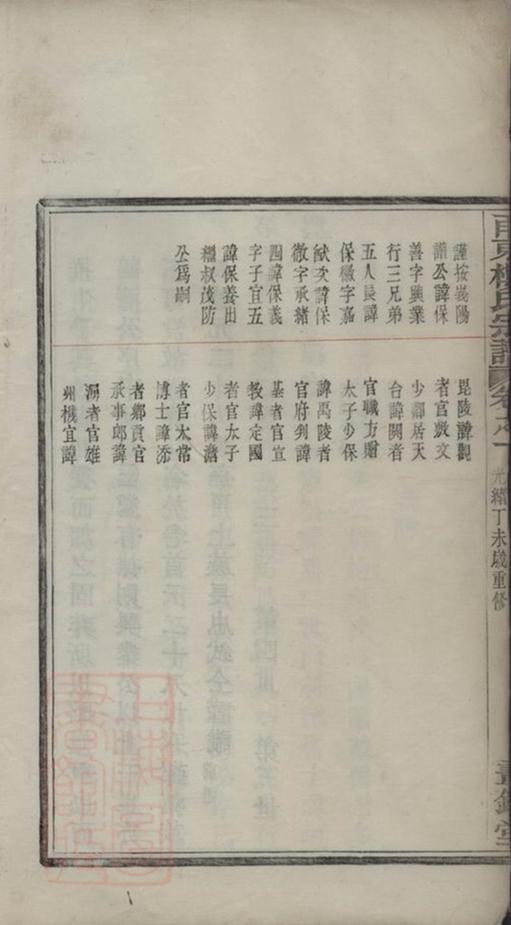 甬東樓氏宗譜
光緒丁未歲重修
晝錦堂
謹按義陽
譜公諱保
善字興業
行三兄弟
五人長諱
保徽字嘉
猷次諱保
徹字承緒
四諱保義
字子宜五
諱保養出
繼叔茂防
公為嗣
毘陵諱觀
者官敷文
少卿居天
台諱闕者
官職方贈
太子少保
諱禹陵者
官府判諱
基者官宣
教諱定國
者官太子
少保諱澹
者官太常
博士諱添
者鄉貢官
承事郎諱
淵者官雄
州機宜諱